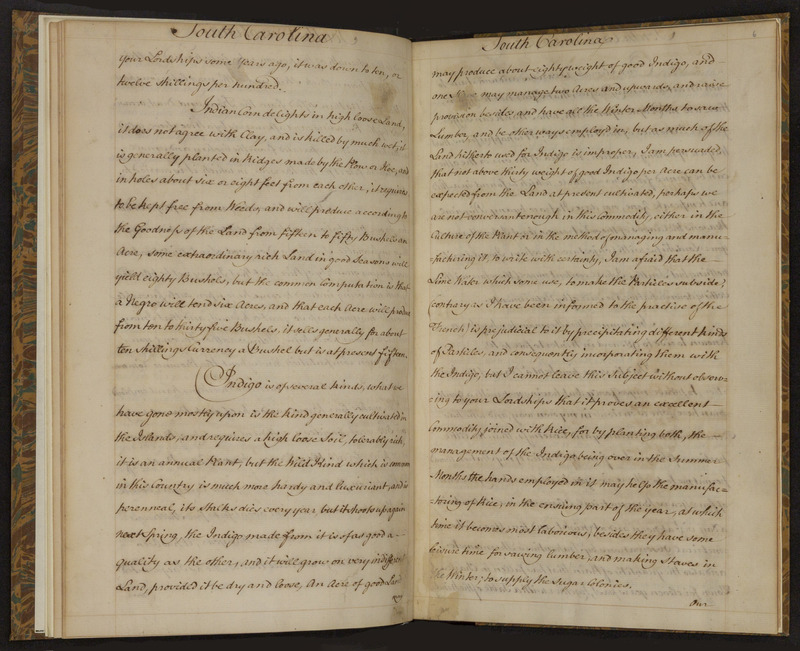 South Carolina
Your Lordships some Years ago, it was down to ten, or
twelve shillings per hundred.
Indian Corn delights in high loose Land,
it does not agree with Clay, and is killed by much wet, it
is generally planted in Ridges made by the Plow or Hoe, and
in holes about six or eight feet from each other, it requires
to be kept free from Weeds, and will produce according to
the Goodness of the Land from fifteen to fifty Bushels an
Acre, some extraordinary rich Land in good Seasons will
yield eighty Bushels, but the common Computation is that
a Negro will tend six Acres, and that each Acre will produce
from ten to thirty five Bushels. it sells generally for about
ten shillings Currency a Bushel but is at present fifteen.
Indigo is of several kinds, what we
have gone mostly upon is the kind generally cultivated in
the Islands, and requires a high loose Soil, tolerably rich,
it is an annual Plant, but the Wild Kind which is common
in this Country is much more hardy and luxuriant, and is
perenneal, its Stalks dies every year but it shoots up again
next Spring, the Indigo made from it is of as good a
quality as the other, and it will grow on very indifferent
Land, provided it be dry and loose, An Acre of good Land
may
South Carolina
6
may produce about eighty weight of good Indigo, and
one may manage two Acres and upwards, and raise
provision besides, and have all the Winter Months to saw
Lumber, and be other ways employ'd in, but as much of the
Land hitherto used for Indigo is improper, I am persuaded
that not above thirty weight of good Indigo per Acre can be
expected from the Land at present cultivated, perhaps we
are not conversant enough in this Commodity, either in the
Culture of the Plant or in the method of managing and manu-
facturing it, to write with certainty, I am afraid that the
Lime Water which some use, to make the Particles subside,
contrary as I have been informed to the practise of the
French) is prejudicial to it by precipitating different kinds
of Particles, and consequently incorporating them with
the Indigo, but I cannot leave this Subject without observ-
eing to your Lordships that it proves an excellent
Commodity, joined with Rice, for by planting both, the
management of the Indigo being over in the Summer
Months the hands employed in it may help the manufac-
-toring of Rice, in the ensuing part of the year, at which
time it becomes most laborious, besides they have some
leisure time for sawing lumber, and making Staves in
the Winter, to supply the Sugar Colonies.
Our